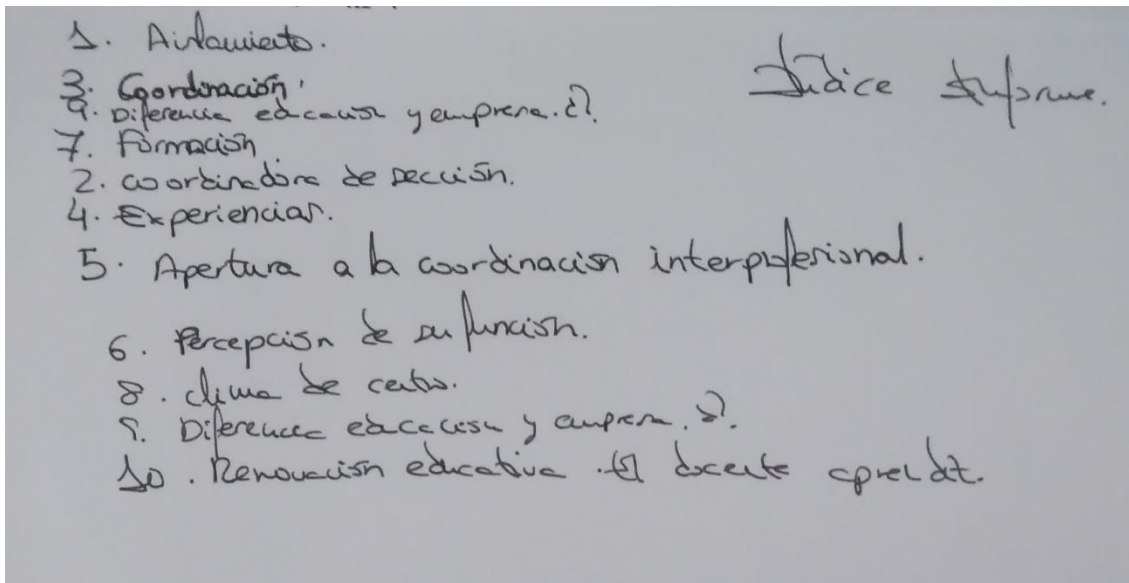 1. Aislamiento.
Índice Informe.
3. Coordinación.
9. Diferencia educación y empresa. ¿?.
7. Formación
2. Coordinadora de sección.
4. Experiencias.
5. Apertura a la coordinación interprofesional.
6. Percepción de su función.
8. clima de centro.
9. Diferencia educación y empresa. ¿?.
10. Renovación educativa. El docente aprendiz.